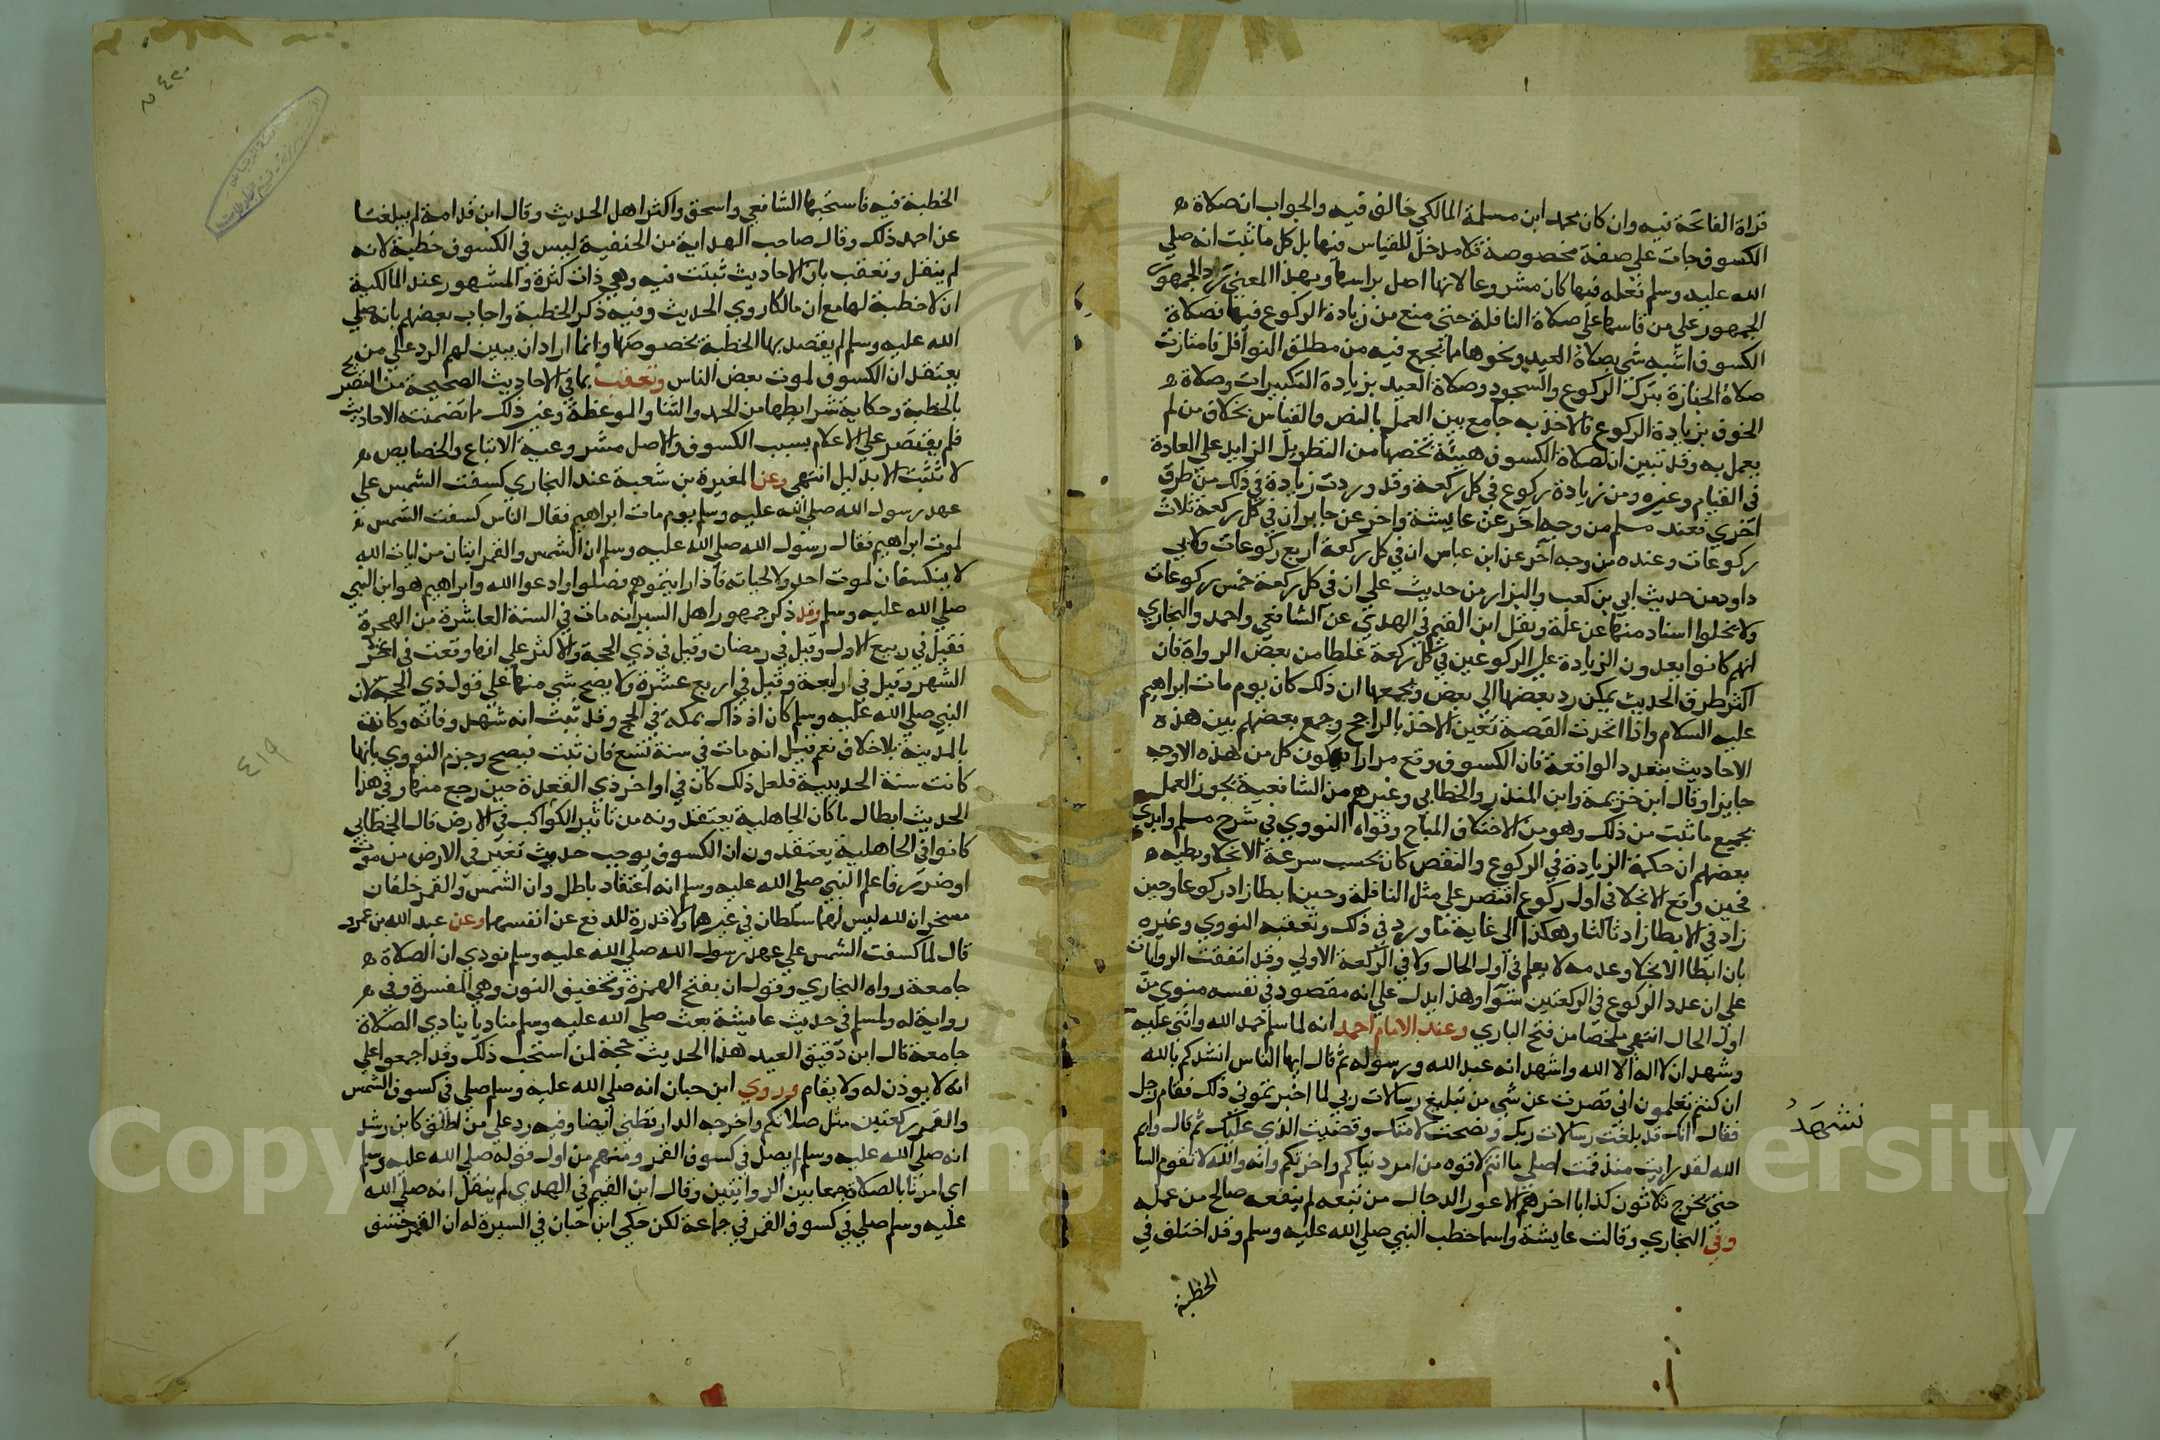 قراة الفاتحة فيه وان كان محمد ابن مسلمة المالكي خالف فيه والجواب ان صلاة
الكسوف جات على صفة مخصوصة فلا مدخل للقياس فيها بل كل ما ثبت انه صلي
الله عليه وسلم فعله فيها كان مشروعا لانها اصل براسها وبهذا المعني رد الجمهور
الجمهور علي من قاسها علي صلاة النافلة حتي منع من زيادة الركوع فيها فصلاة
الكسوف اشبه شي بصلاة العيد ونحوها مما يجمع فيه من مطلق النوافل فامتازت
صلاة الجنازة بترك الركوع والسجود وصلاة العيد بزيادة التكبيرات وصلاة
الخوف بزيادة الركوع فالاخذ به جامع بين العمل بالنص والقياس بخلاف من لم
يعمل به وقد تبين ان لصلاة الكسوف هيئة تخصها من التطويل الزايد علي العادة
في القيام وغيره ومن زيادة ركوع في كل ركعة وقد وردت زيادة في ذلك من طرق
اخري فعند مسلم من وجه اخر عن عايشة واخر عن جابر ان في كل ركعة ثلاث
ركوعات وعنده من وجه اخر عن ابن عباس ان في كل ركعة اربع ركوعات ولابي
داود من حديث ابي بن كعب والبزار من حديث علي ان في كل ركعة خمس ركوعات
ولا يخلوا اسناد منها عن علة ونقل ابن القيم في الهدي عن الشافعي واحمد والبخاري
انهم كانوا يعدون الزيادة علي الركوعين في كل ركعة غلطا من بعض الرواة فان
اكثر طرق الحديث يمكن رد بعضها الي بعض ويجمعها ان ذلك كان يوم مات ابراهيم
عليه السلام واذا اتحدت القصة تعين الاخذ بالراجح وجمع بعضهم بين هذه
الاحاديث بتعدد الواقعة فان الكسوف وقع مرارا فيكون كل من هذه الاوجه
جايزا وقال ابن خزيمة وابن المنذر والخطابي وغيرهم من الشافعية يجوز العمل
بجميع ما ثبت من ذلك وهو من الاختلاف المباح وقواه النووي في شرح مسلم وابدي
بعضهم ان حكمة الزيادة في الركوع والنقص كان بحسب سرعة الانجلا وبطيه
فحين وقع الانجلا في اول ركوع اقتصر علي مثل النافلة وحين ابطا زاد ركوعا وحين
زاد في الابطا زاد ثالثا وهكذا الي غاية ما ورد في ذلك وتعقبه النووي وغيره
بان ابطا الانجلا وعدمه لا يعلم في اول الحال ولا في الركعة الاولي وقد اتفقت الروايات
علي ان عدد الركوع في الركعتين سوآ وهذا يدل علي انه مقصود في نفسه منوي من
اول الحال انتهي ملخصا من فتح الباري وعند الامام احمد انه لما سلم حمد الله واثني عليه
وشهد ان لا اله الا الله واشهد انه عبد الله ورسوله ثم قال ايها الناس انشدكم بالله
ان كنتم تعلمون اني قصرت عن شي من تبليغ رسالات ربي لما اخبرتموني ذلك فقام رجل
فقال انك قد بلغت رسالات ربك ونصحت لامتك وقضيت الذي عليك ثم قال وايم
الله لقد رايت منذ قمت اصلي ما انتم لاقوه من امر دنياكم واخرتكم وانه والله لا تقوم السا
حتي يخرج ثلاثون كذابا اخرهم الاعور الدجال من تبعه لم ينفعه صالح من عمله
وفي البخاري وقالت عايشة واسما خطب النبي صلي الله عليه وسلم وقد اختلف في
الخطبة
نشهد
٤٢٠
الخطبة فيه فاستحبها الشافعي واسحق واكثر اهل الحديث وقال ابن قدامة لم يبلغنا
عن احمد ذلك وقال صاحب الهداية من الحنفية ليس في الكسوف خطبة لانه
لم ينقل وتعقب بان الاحاديث ثبتت فيه وهي ذات كثرة والمشهور عند المالكية
ان لا خطبة لها مع ان مالكا روي الحديث وفيه ذكر الخطبة واجاب بعضهم بانه صلي
الله عليه وسلم لم يقصد بها الخطبة بخصوصها وانما اراد ان يبين لهم الرد علي من
يعتقد ان الكسوف لموت بعض الناس وتعقب بما في الاحاديث الصحيحة من التصريح
بالخطبة وحكاية شرايطها من الحمد والثنا والموعظة وغير ذلك مما تضمنته الاحاديث
فلم يقتصر علي الاعلام بسبب الكسوف والاصل مشروعية الاتباع والخصايص
لا تثبت الا بدليل انتهي وعن المغيرة بن شعبة عند البخاري كسفت الشمس علي
عهد رسول الله صلي الله عليه وسلم يوم مات ابراهيم فقال الناس كسفت الشمس
لموت ابراهيم فقال رسول الله صلي الله عليه وسلم ان الشمس والقمر ايتان من ايات الله
لا ينكسفان لموت احد ولا لحياته فاذا رايتموهم فصلوا وادعوا الله وابراهيم هو ابن النبي
صلي الله عليه وسلم وقد ذكر جمهور اهل السير انه مات في السنة العاشرة من الهجرة
فقيل في ربيع الاول وقيل في رمضان وقيل في ذي الحجة والاكثر علي انها وقعت في اخر
الشهر وقيل في رابعة وقيل في اربع عشرة ولا يصح شي منها علي قول ذي الحجة لان
النبي صلي الله عليه وسلم كان اذ ذاك بمكة في الحج وقد ثبت انه شهد وفاته وكانت
بالمدينة بلا خلاف نعم قيل انه مات في سنة تسع فان ثبت فيصح وجزم النووي بانها
كانت سنة الحديبية فلعل ذلك كان في اواخر ذي القعدة حين رجع منها وفي هذا
الحديث ابطال ما كان الجاهلية يعتقدونه من تاثير الكواكب في الارض قال الخطابي
كانوا في الجاهلية يعتقدون ان الكسوف يوجب حدوث تغير في الارض من موت
او ضرر فاعلم النبي صلي الله عليه وسلم انه اعتقاد باطل وان الشمس والقمر خلقان
مسخران لله ليس لهما سلطان في غيرهما ولا قدرة للدفع عن انفسهما وعن عبد الله بن عمرو
قال لما كسفت الشمس علي عهد رسول الله صلي الله عليه وسلم نودي ان الصلاة
جامعة رواه البخاري وقوله ان بفتح الهمزة وتخفيف النون وهي المفسرة وفي
رواية له ولمسلم في حديث عايشة بعث صلي الله عليه وسلم مناديا ينادي الصلاة
جامعة قال ابن دقيق العيد هذا الحديث حجة لمن استحب ذلك وقد اجمعوا علي
انه لا يوذن له ولا يقام وروي ابن حبان انه صلي الله عليه وسلم صلي في كسوف الشمس
والقمر ركعتين مثل صلاتكم واخرجه الدارقطني ايضا وفيه رد علي من اطلق كابن رشد
انه صلي الله عليه وسلم لم يصل في كسوف القمر ومنهم من اول قوله صلي الله عليه وسلم
اي امرنا بالصلاة جمعا بين الروايتين وقال ابن القيم في الهدي لم ينقل انه صلي الله
عليه وسلم صلي في كسوف القمر في جماعة لكن حكي ابن حبان في السيرة له ان القمر خسف
٤١٩
Copyright © King Saud University